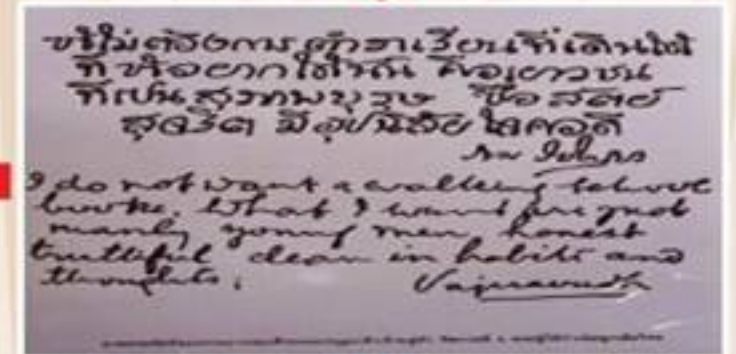 ข้าไม่ต้องการตำราเรียนที่เดินได้
ที่ข้าอยากได้นั้น คือเยาวชน
ที่เป็นสุภาพบุรุษ ซื่อสัตย์
สุจริต มีอุปนิสัยใจคอดี
I do not want a walking school
books. What I want are just
manly young men, honest
truthful clean in habits and
thoughts.
Vajiravudh